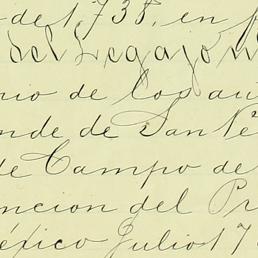 de 1,738, en f
del Legajo n
rio de los au
nde de San Ve
de Campo de
ncion del Pr
éxico Julio 17